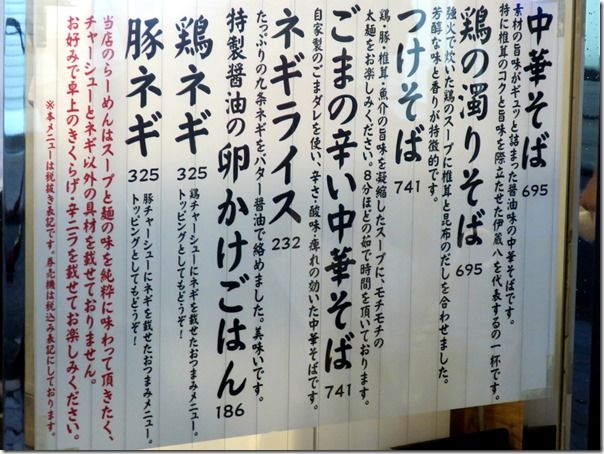 中華そば 695
素材の旨味がギュッと詰まった醤油味の中華そばです。
特に椎茸のコクと旨味を際立たせた伊蔵八を代表するの一杯です。
鶏の濁りそば 695
強火で炊いた鶏のスープに椎茸と昆布のだしを合わせました。
芳醇な味と香りが特徴的です。
つけそば 741
鶏・豚・椎茸・魚介の旨味を凝縮したスープに、モチモチの
太麺をお楽しみください。8分ほどの茹で時間を頂いております。
ごまの辛い中華そば 741
自家製のごまダレを使い、辛さ・酸味・痺れの効いた中華そばです。
ネギライス 232
たっぷりの九条ネギをバター醤油で絡めました。美味いです。
特製醤油の卵かけごはん 186
鶏ネギ 325
鶏チャーシューにネギを載せたおつまみメニュー。
トッピングとしてもどうぞ！
豚ネギ 325
豚チャーシューにネギを載せたおつまみメニュー。
トッピングとしてもどうぞ！
当店のらーめんはスープと麺の味を純粋に味わって頂きたく、
チャーシューとネギ以外の具材を載せておりません。
お好みで卓上のきくらげ・辛ニラを載せてお楽しみください。
※本メニューは税抜き表記です。券売機は税込み表記にしております。